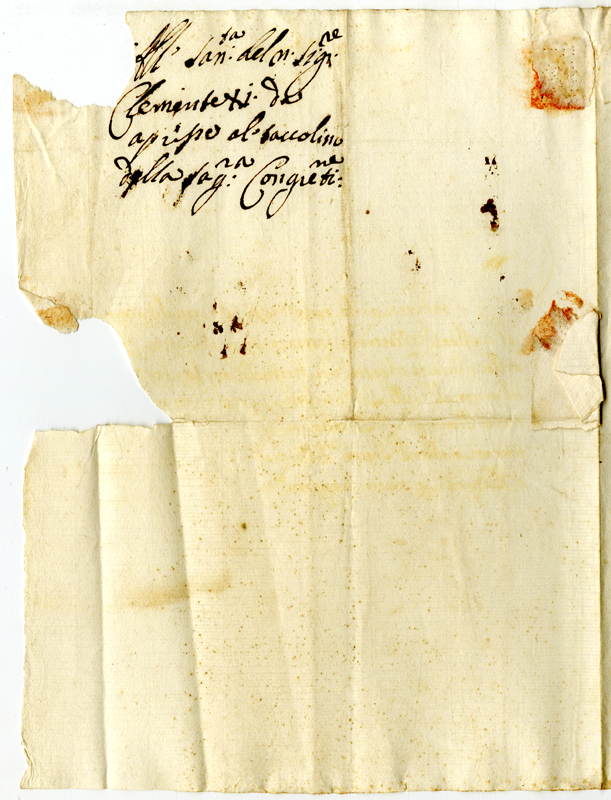 All. San.ta del n. Sig.re
Clemente XI. da
aprirse al taccolino
della sag.ra Congre.ti.ne